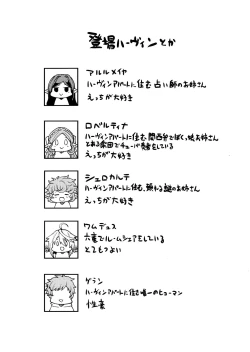 登場ハーヴィンとか
アルルメイヤ
ハーヴィンアパートに住む占い師のお姉さん
えっちが大好き
ロベルティナ
ハーヴィンアパートに住む関西弁でぼく娘お姉さん
とある家団でチューバ奏者をしている
えっちが大好き
シェロカルテ
ハーヴィンアパートに住む、頼れる謎のお姉さん
えっちが大好き
ワムデュス
六竜でルームシェアをしている
とてもつよい
グラン
ハーヴィンアパートに住む唯一のヒューマン
性豪